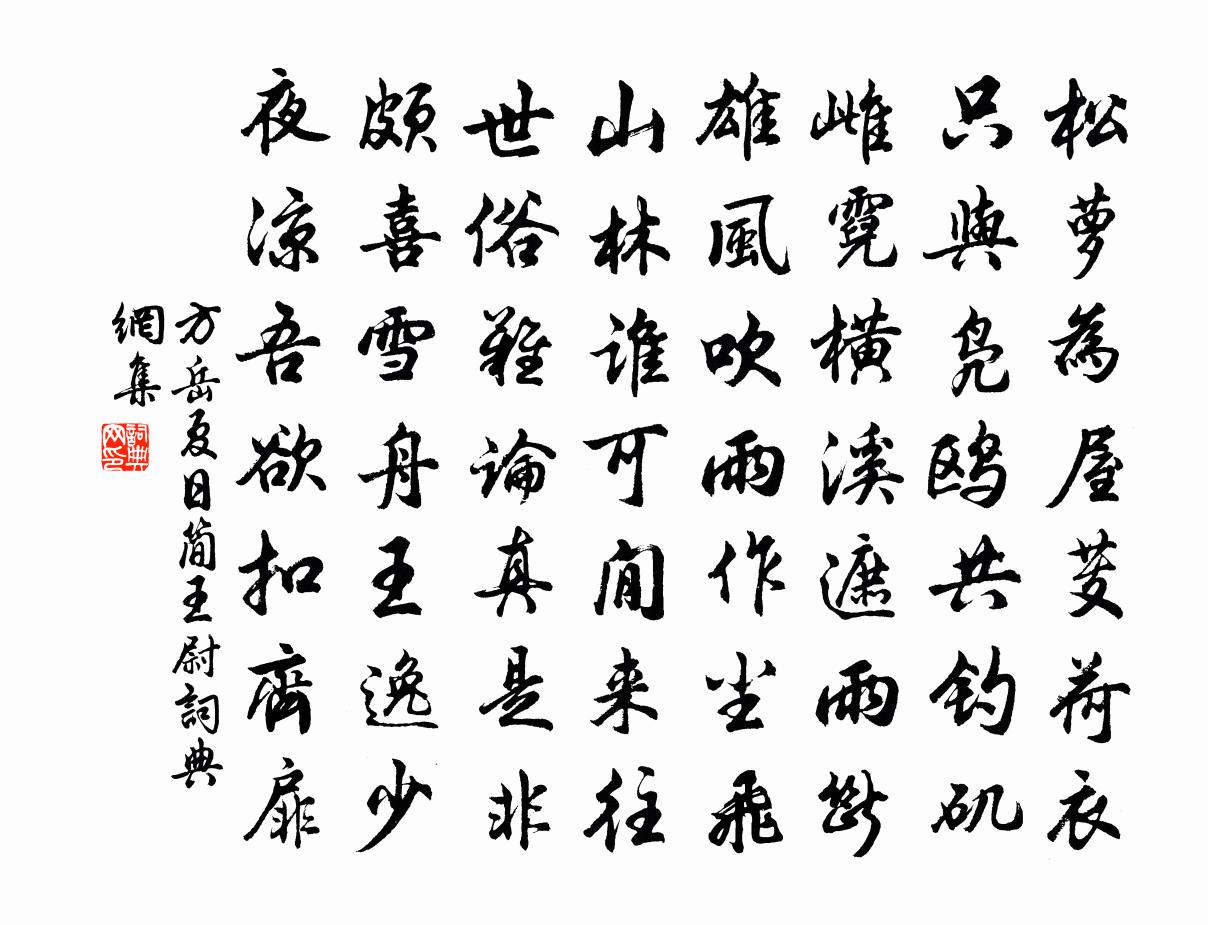 松萝為屋芰荷衣
只與凫鸥共钓矶
雌霓橫溪遮雨斷
雄風吹雨作尘飛
山林谁可間来往
世俗难論真是非
颇喜雪舟王逸少
夜凉吾欲扣齊扉
方岳夏日简王尉詞典
網集
詞典网印